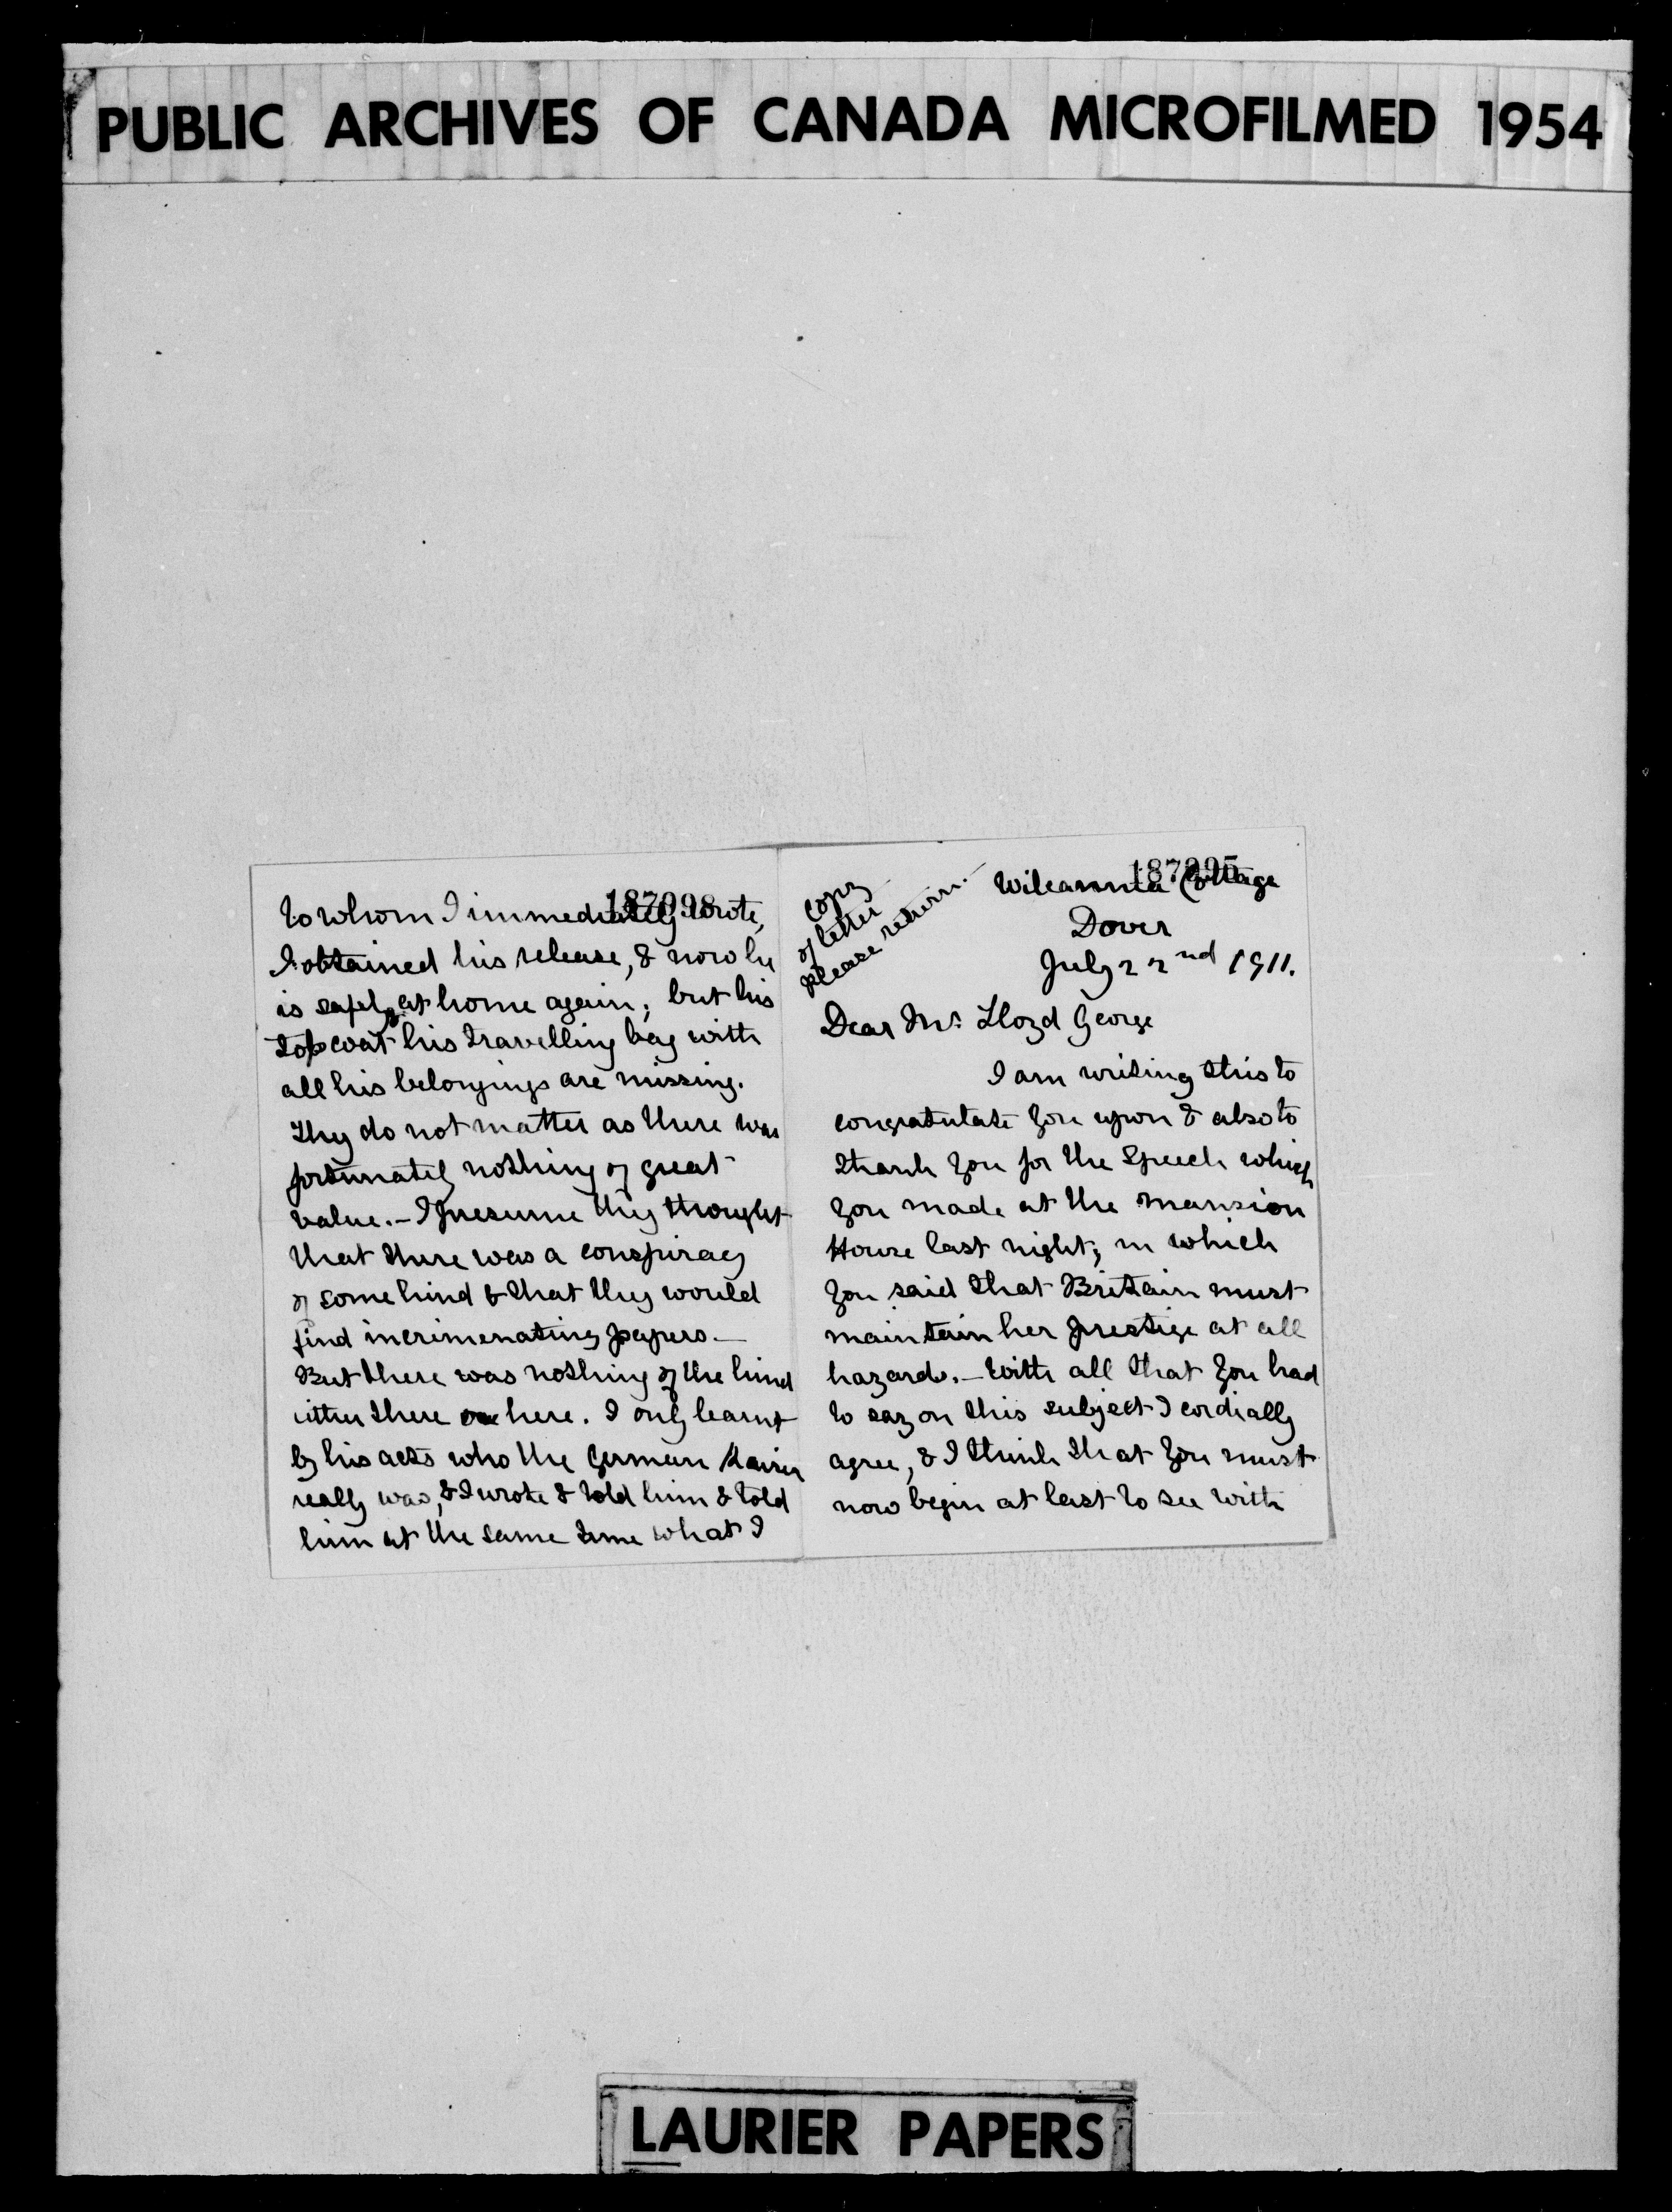 PUBLIC ARCHIVES OF CANADA MICROFILMED 1954
187098
to whom I immediately wrote,
I obtained his release, & now he
is safely at home again; but his
top coat & his travelling bag with
all his belongings are missing.
They do not matter as there was
fortunately nothing of great
value. — I presume they thought
that there was a conspiracy
of some kind & that they would
find incrimenating papers. —
But there was nothing of the kind
either there or here. I only learnt
by his acts who the German Kaiser
really was, & I wrote & told him & told
him at the same time what I
187095
copy
of letter
please return. —
Wilcannia Cottage
Dover
July 22nd 1911.
Dear Mr. Lloyd George
I am writing this to
congratulate you upon & also to
thank you for the Speech which
you made at the Mansion
House last night; in which
you said that Britain must
maintain her prestige at all
hazards. — With all that you had
to say on this subject I cordially
agree, & I think that you must
now begin at last to see with
LAURIER PAPERS